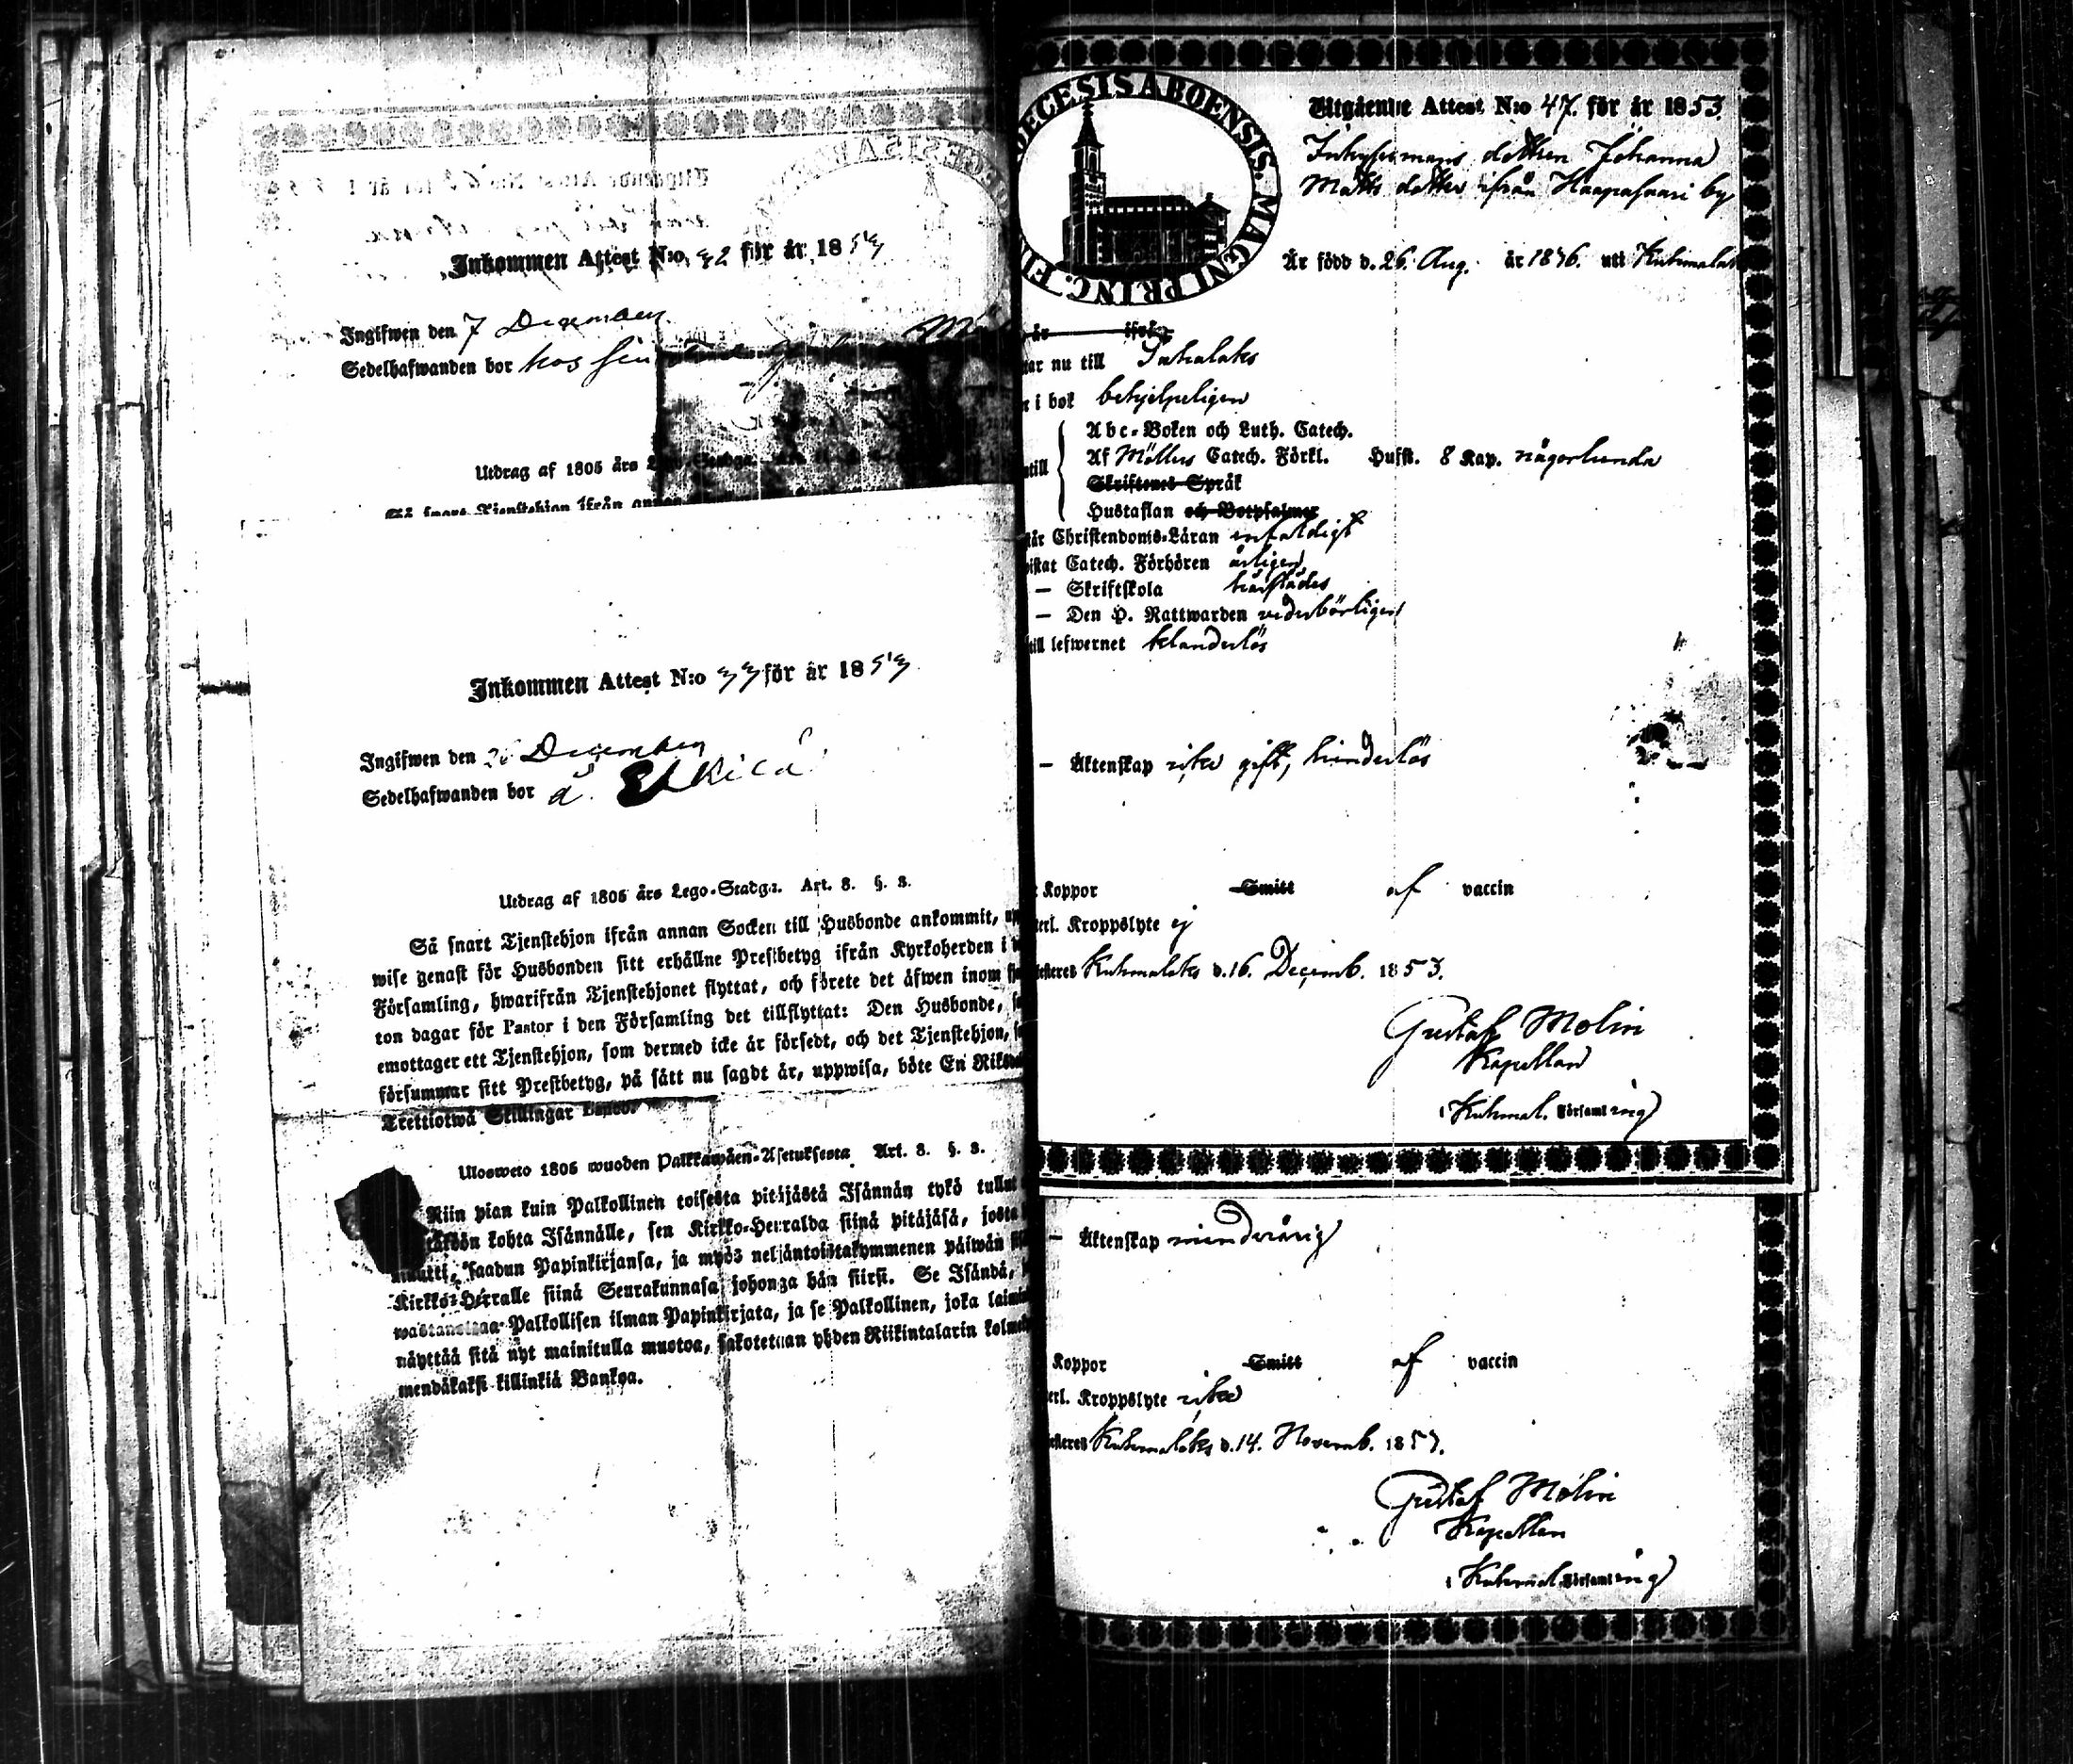 Inkommen Attest N:o 32 för år 1853
Ingifwen den 7 December
Sedelhafwanden bor hos sin
Utdrag af 1805 års
Så snart Tjenstehjon ifrån annan
Inkommen Attest N:o 33 för år 1853
Ingifwen den December
Sedelhafwanden bor å
Utdrag af 1805 års Lego-Stadga. Art. 8. §. 3.
Så snart Tjenstehjon ifrån annan Socken till Husbonde ankommit,
wise genast för Husbonden sitt erhållne Prestbetyg ifrån Kyrkoherden i
Församling, hwarifrån Tjenstehjonet flyttat, och förete det äfwen inom
ton dagar för Pastor i den Församling det tillflyttat: Den Husbonde,
emottager ett Tjenstehjon, som dermed icke är försedt, och det Tjenstehjon,
försummar sitt Prestbetyg, på sätt nu sagdt är, uppwisa, böte En
Trettiotwå Skillingar Banco.
Ulosweto 1805 wuoden Palkkawäen-Asetuksesta Art. 8. §. 3.
Niin pian kuin Palkollinen toisesta pitäjästä Isännän tykö tullut
kohta Isännälle, sen Kirkko-Herralda siinä pitäjäsä, josta
muutti, saadun Papinkirjansa, ja myös neljäntoistakymmenen päiwän
Kirkko-Herralle siinä Seurakunnasa johonga hän siirsi. Se Isändä,
wastanottaa Palkollisen ilman Papinkirjata, ja se Palkollinen, joka
näyttää sitä nyt mainitulla muotoa, sakotetaan yhden Riikintalarin
mendäkaksi killinkiä Bankoa.
ECESIS ABOENSIS. MAGNI PRINC.
Utgående Attest N:o 47. för år 1853.
Inhysesmans dottren Johanna
Matts dotter ifrån Haapasaari by
Är född d. 26. Aug. år 1836. uti Kuhmalaks
år ifrån
nu till Sahalaks
i bok behjelpeligen
Abc-Boken och Luth. Catech.
Af Möllers Catech. Förkl. Hufst. 8 Kap. någorlunda
Skriftenes Språk
Hustaflan och Botpsalmer
Christendoms-Läran enfaldigt
Catech. Förhören årligen
— Skriftskola härstädes
— Den H. Nattwarden vederbörligen
till lefwernet klanderlös
— Äktenskap icke gift, hinderlös
Koppor Smitt af vaccin
Kroppslyte ej
Kuhmalaks d. 16. Decemb. 1853.
Gustaf Molin
Kapellan
i Kuhmal. Församling
— Äktenskap minderårig
Koppor Smitt af vaccin
Kroppslyte icke
Kuhmalaks d. 14. Novemb. 1853.
Gustaf Molin
Kapellan
i Kuhmal. Församling